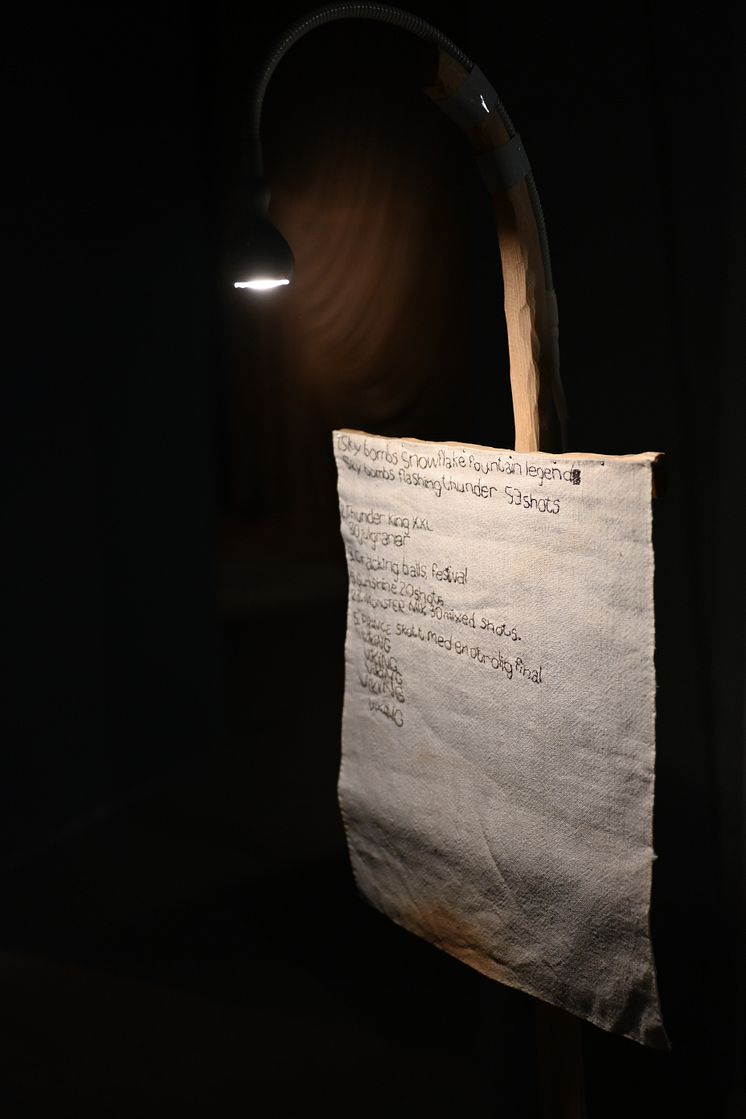 1 Sky bombs Snowflake fountain legends
Sky bombs flashing thunder 53 shots
Thunder King XXL
30 julgranar
Cracking balls, festival
Sunshine 20 shots
MONSTER MIX 30 mixed shots.
PRINCE skott med en otrolig final
VIKING
VIKING
VIKING
VIKING
VIKING